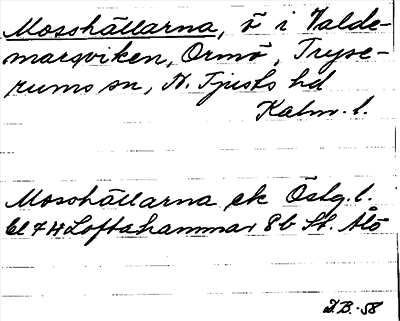 Mosshällarna, ö i Valde-
marsviken, Ormö, Tryse-
rums sn, N. Tjusts hd
Kalm. l.
Mosshällarna ek Östg. l.
bl 7 H Loftahammar 8b St. Ålö
D.B. -58